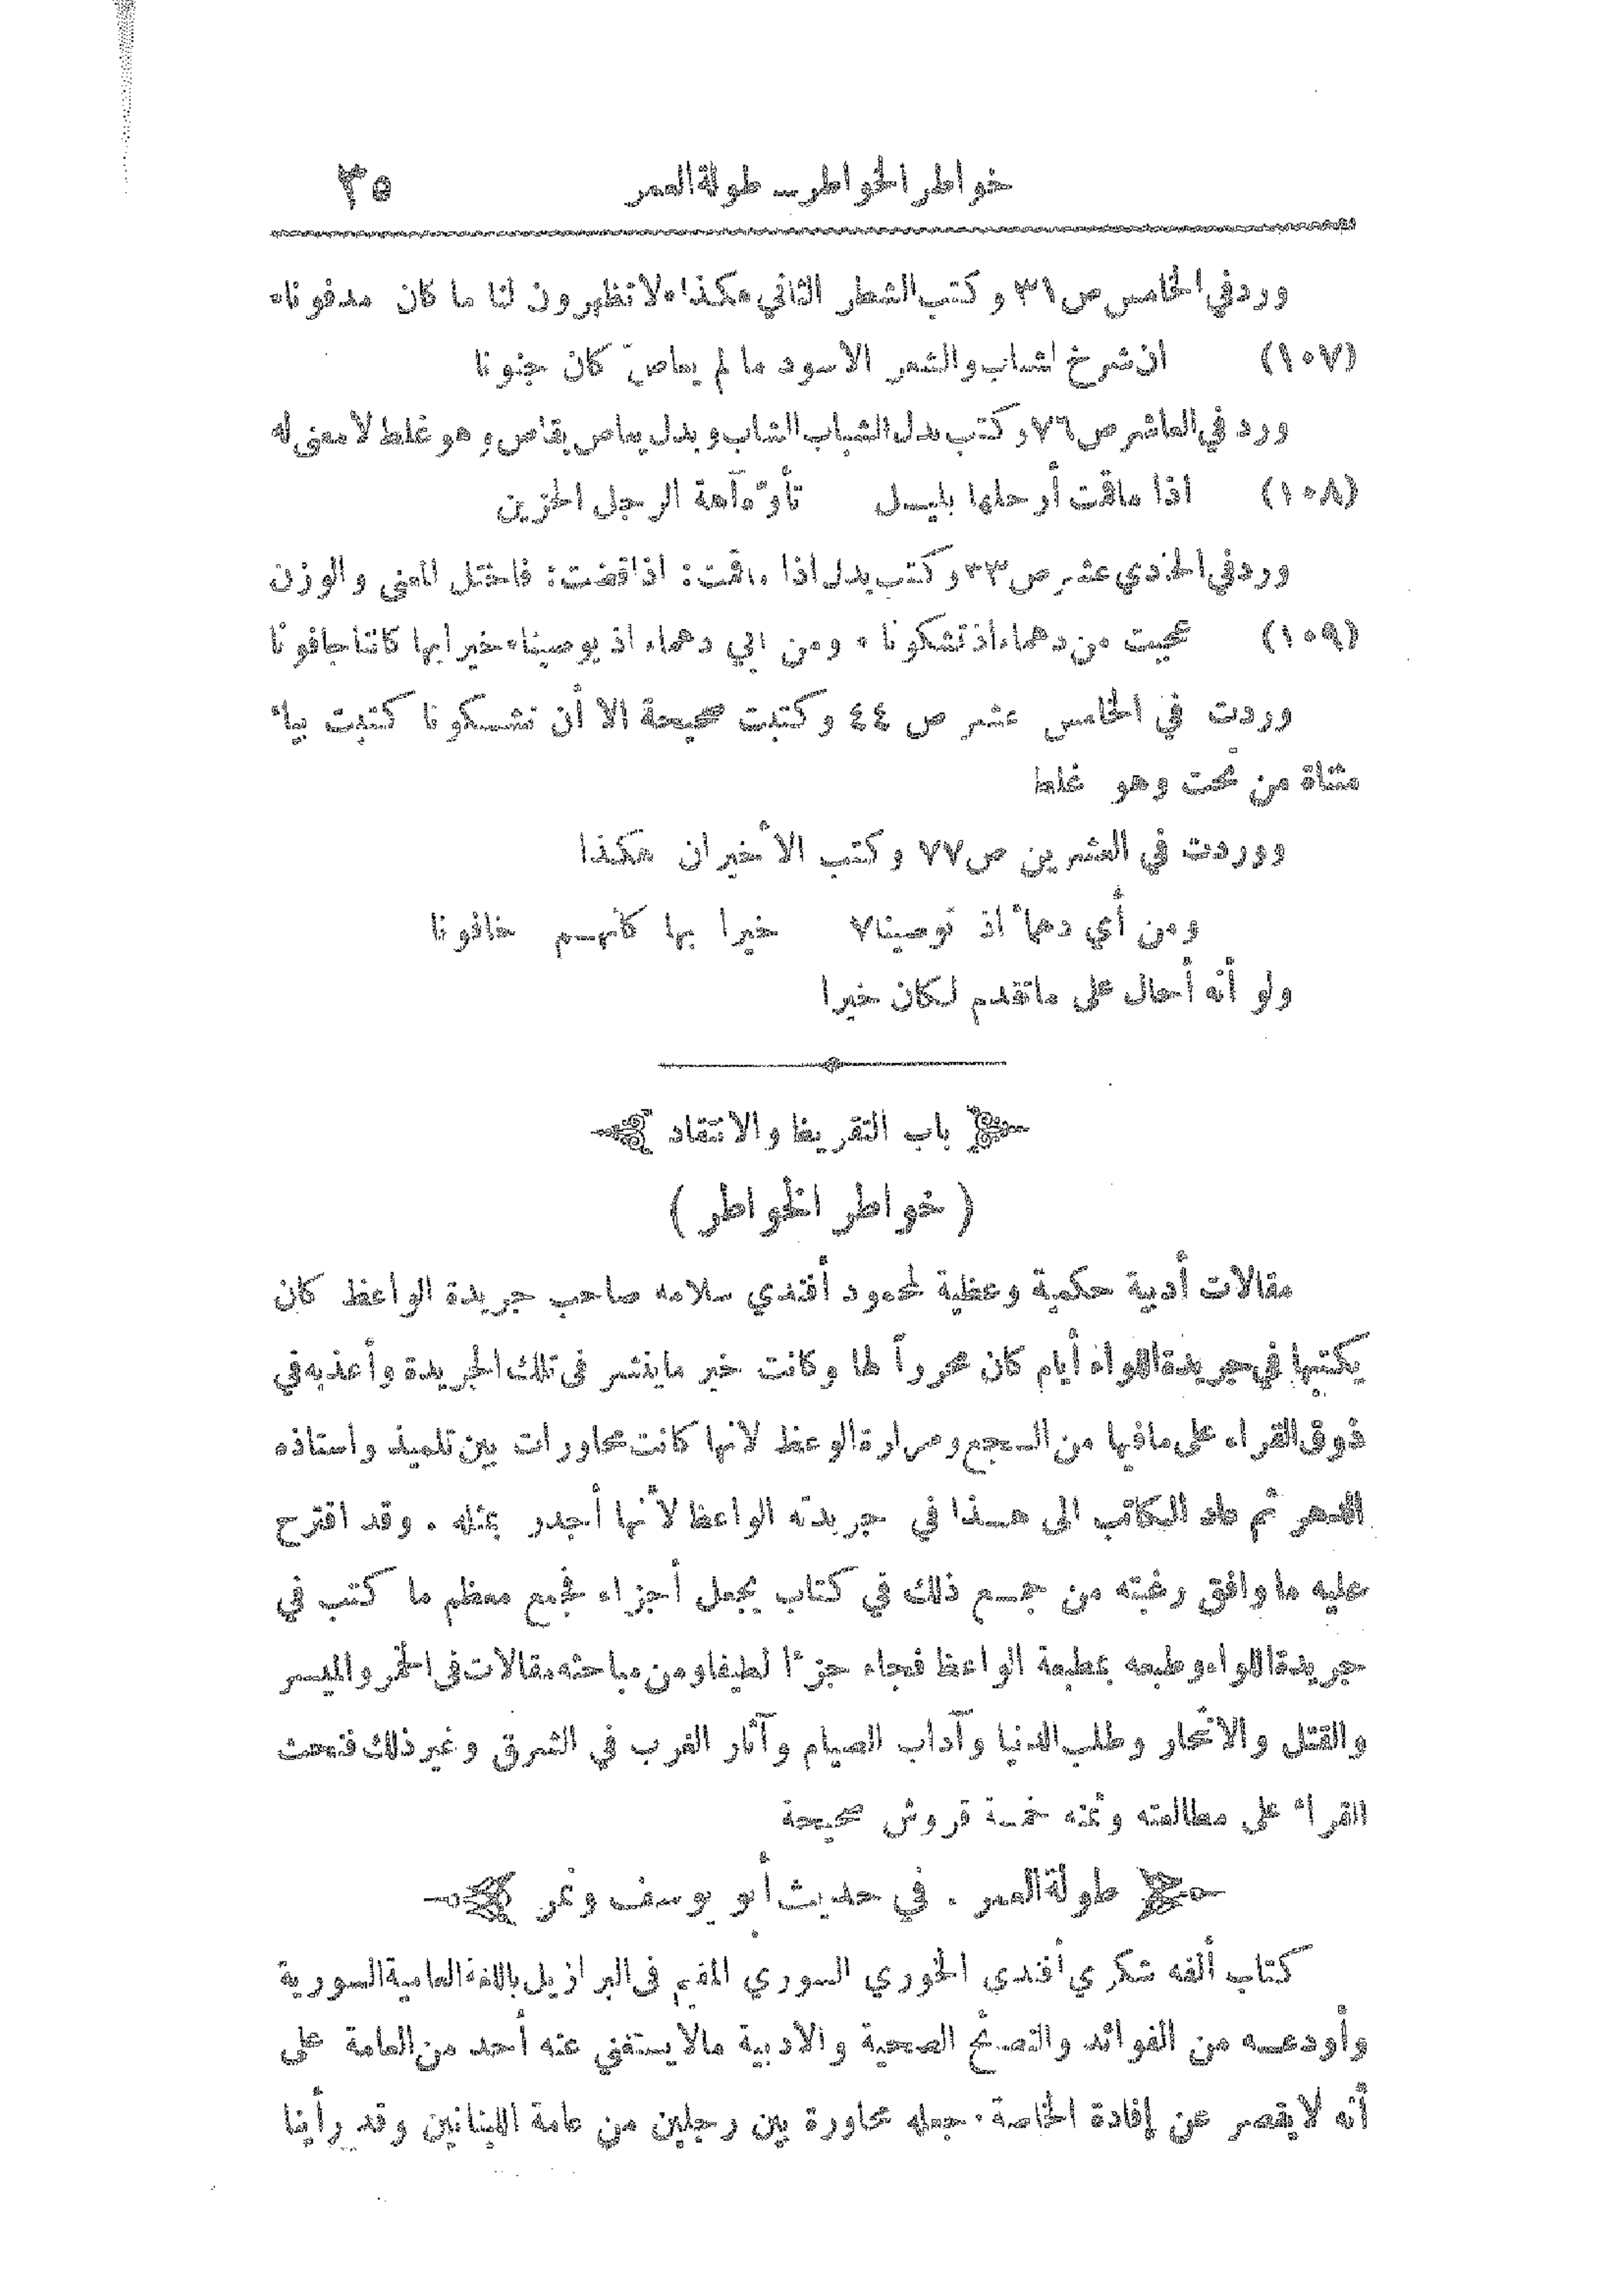 خواطر الخواطر ـ طولة العمر ٣٥
ورد في الخامس ص ٣١ وكتب الشطر الثاني هكذا ٠ لا تظهرون لنا ما كان مدفونا ٠
(١٠٧) ان شرخ اشباب والشعر الاسود ما لم يعاصَ كان جنونا
ورد في العاشر ص ٧٦ وكتب بدل الشباب الشاب وبدل يعاص يقاص وهو غلط لا معنى له
(١٠٨) اذا ماقمت أرحلها بليـل تأوّه آهة الرجل الحزين
ورد في الحادي عشر ص ٣٣ وكتب بدل اذا ماقمت : اذا قمت : فاختل المعنى والوزن
(١٠٩) عجبت من دهماء اذ تشكونا ٠ ومن ابي دهماء اذ يوصينا ٠ خيرا بها كاننا جافونا
وردت في الخامس عشر ص ٤٤ وكتبت صحيحة الا أن تشـكونا كتبت بياء
مثناة من تحت وهو غلط
ووردت في العشرين ص ٧٧ وكتب الأخيران هكذا
ومن أي دهماء اذ توصينا ٧ خيرا بها كأنهـم خافونا
ولو أنه أحال على ماتقدم لكان خيرا
باب التقريظ والانتقاد
( خواطر الخواطر )
مقالات أدبية حكمية وعظية لمحمود أفندي سلامه صاحب جريدة الواعظ كان
يكتبها في جريدة اللواء أيام كان محرراً لها وكانت خير ماينشر فى تلك الجريدة وأعذبه في
ذوق القراء على مافيها من السـجع ومرارة الوعظ لانها كانت محاورات بين تلميذ واستاذه
الدهر ثم عاد الكاتب الى هـذا في جريدته الواعظ لأنها أجدر بمثله . وقد اقترح
عليه ما وافق رغبته من جمـع ذلك في كتاب يجعل أجزاء تجمع معظم ما كتب في
جريدة اللواء وطبعه بمطبعة الواعظ فجاء جزءًا لطيفا ومن مباحثه مقالات فى الخمر والميسـر
والقتل والانتحار وطلب الدنيا وآداب الصيام وآثار الغرب في الشرق وغير ذلك فنحث
القراء على مطالعته وثمنه خمسـة قروش صحيحة
طولة العمر . في حديث أبو يوسف ونمر
كتاب ألفه شكري أفندى الخوري السوري المقيم فى البرازيل باللغة العامية السورية
وأودعـه من الفوائد والنصائح الصحية والادبية مالا يستغني عنه أحد من العامة على
أنه لا يقصر عن إفادة الخاصة ٠ جعله محاورة بين رجلين من عامة اللبنانين وقد رأينا